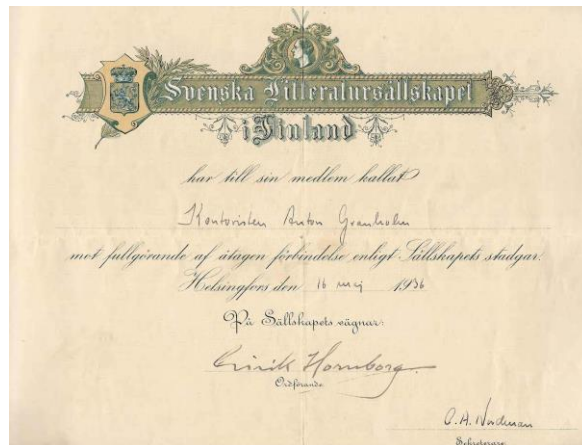 Svenska Litteratursällskapet
i Finland
har till sin medlem kallat
Kontoristen Anton Granholm
mot fullgörande af åtagen förbindelse enligt Sällskapets stadgar.
Helsingfors den 16 maj 1936
På Sällskapets vägnar:
Eirik Hornborg.
Ordförande
C. A. Nordman
Sekreterare